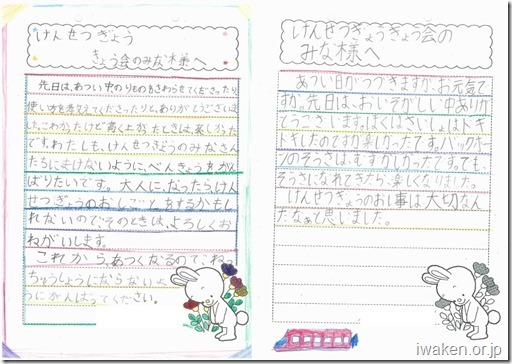 けんせつぎょう
きょう会のみな様へ
先日は、あつい中のりものをさわらせてくださったり
使い方を考えてくださったりと、ありがとうございま
した。こわかったけど高く上がったときは、楽しかった
です。わたしも、けんせつぎょうのみなさん
たちにまけないように、べんきょうをがん
ばりたいです。大人に、なったら、けん
せつぎょうのおしごとをするかもし
れないので、そのときは、よろしくお
ねがいします。
これから、あつくなるので、ねっ
ちゅうしょうにならないよ
うにがんばってください。
けんせつぎょうきょう会の
みな様へ
あつい日がつづきますが、お元気で
すか。先日は、おいそがしい中ありが
とうございます。ぼくはさいしょはドキ
ドキしたのですが楽しかったです。バックホー
ンのそうさは、むずかしかったです。でも、
そうさになれてきたら、楽しくなりました。
けんせつぎょうのお仕事は大切なん
だなぁと思いました。
iwaken.or.jp